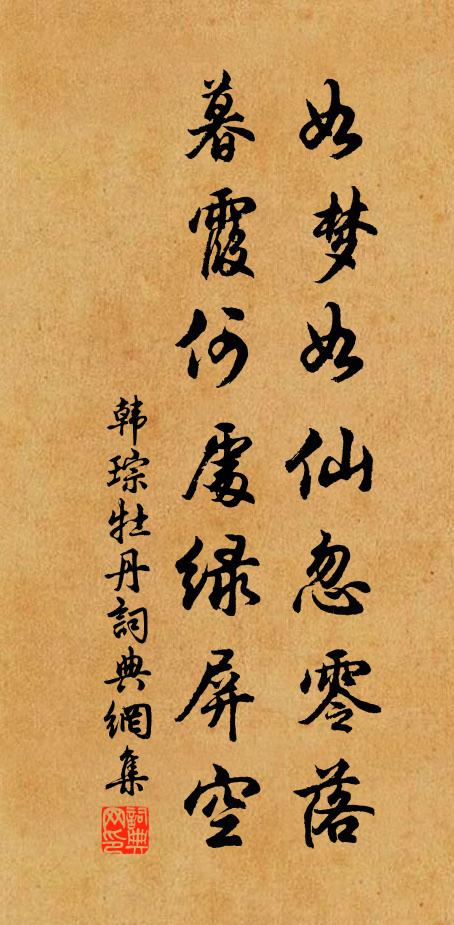 如梦如仙忽零落
暮霞何處绿屏空
韩琮牡丹詞典網集
詞典网印